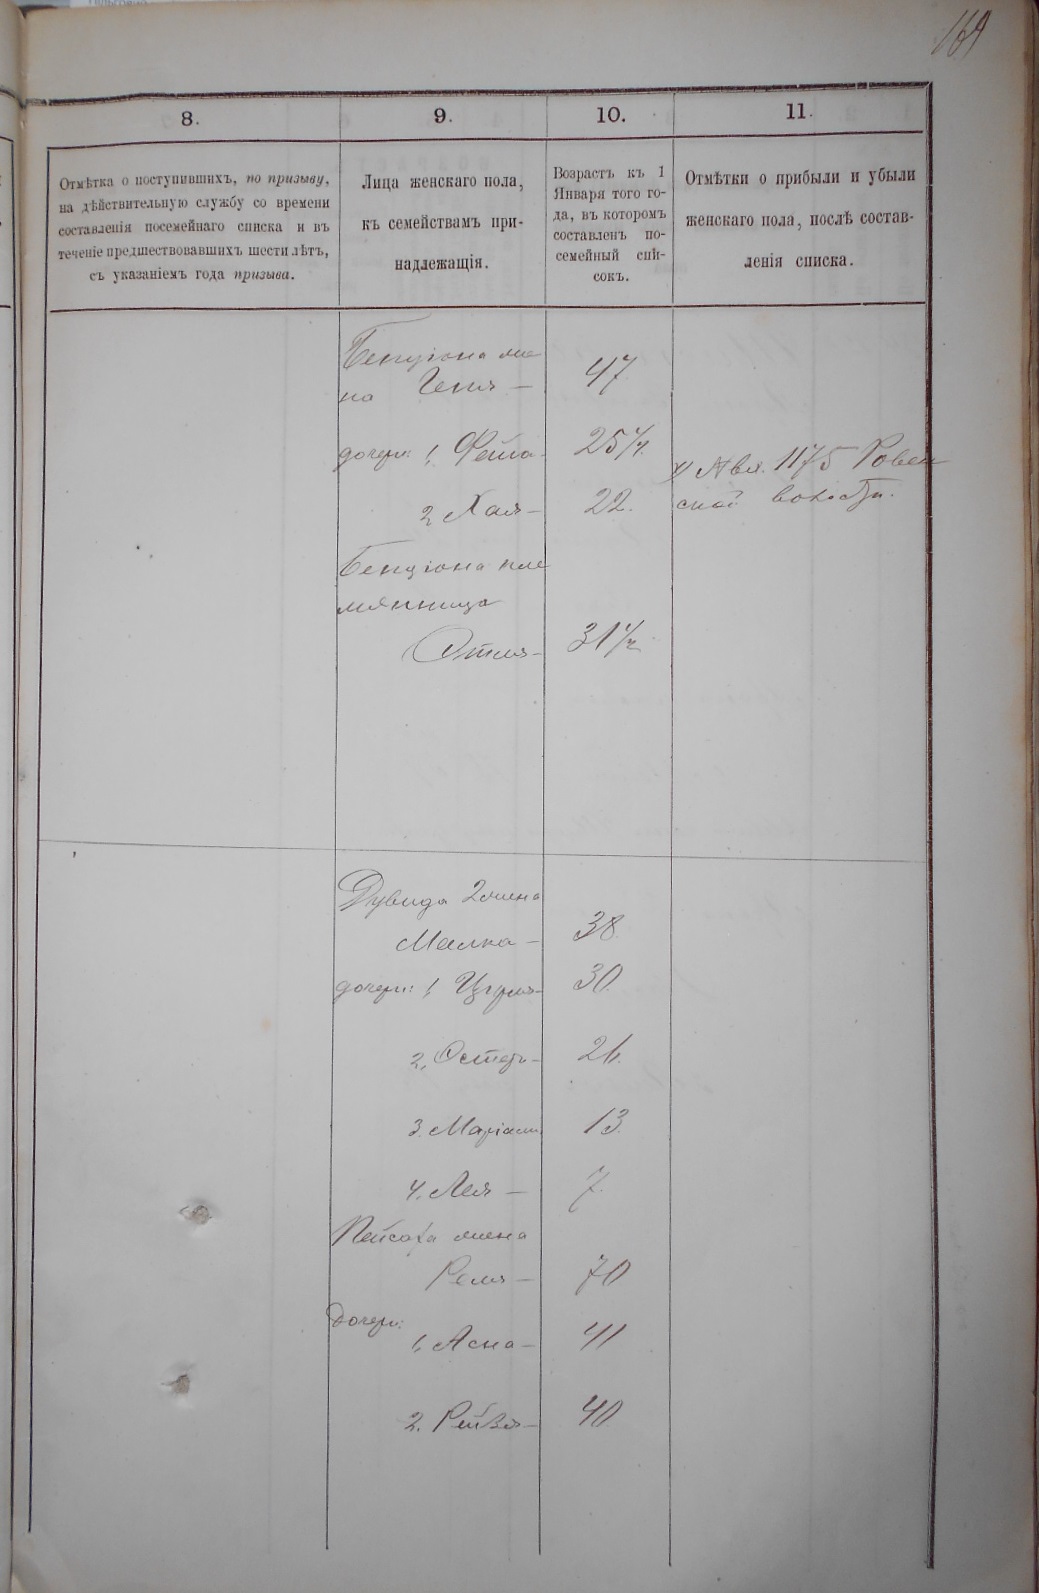 169
8.
9.
10.
11.
Отмѣтка о поступившихъ, по призыву,
на дѣйствительную службу со времени
составленія посемейнаго списка и въ
теченіе предшествовавшихъ шести лѣтъ,
съ указаніемъ года призыва.
Лица женскаго пола,
къ семействамъ при-
надлежащія.
Возрастъ къ 1
Января того го-
да, въ которомъ
составленъ по-
семейный спи-
сокъ.
Отмѣтки о прибыли и убыли
женскаго пола, послѣ состав-
ленія списка.
Бенціона же
на Геня — 47
дочери: 1, Фейга 25 1/2.
2, Хая — 22.
1175 Ровен
ской волости.
Бенціона пле
мянница
31 1/2
Дувида 2 жена
Малка — 38.
дочери: 1, 30.
2, Эстеръ — 26.
3. Маріам 13.
4. Лея — 7.
Пейсаха жена
Рейзя — 70
Дочери:
1, Асна — 41
2. — 40